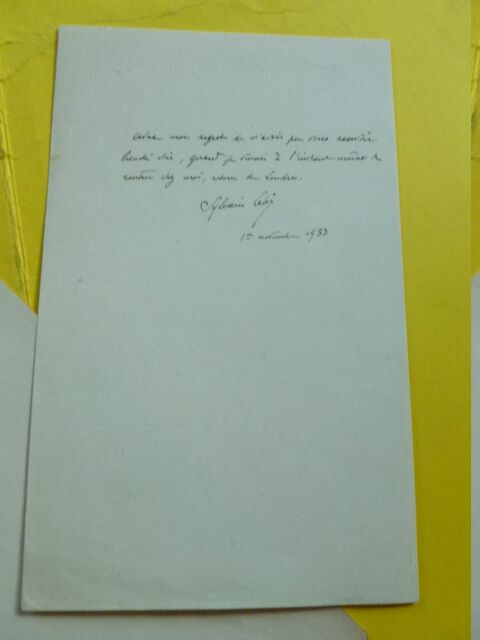 avec mon regret de n'avoir pu vous recevoir
lundi soir, quand je venais à l'instant même de
rentrer chez moi, retour de Londres.
Sylvain Lévi
1er novembre 1933